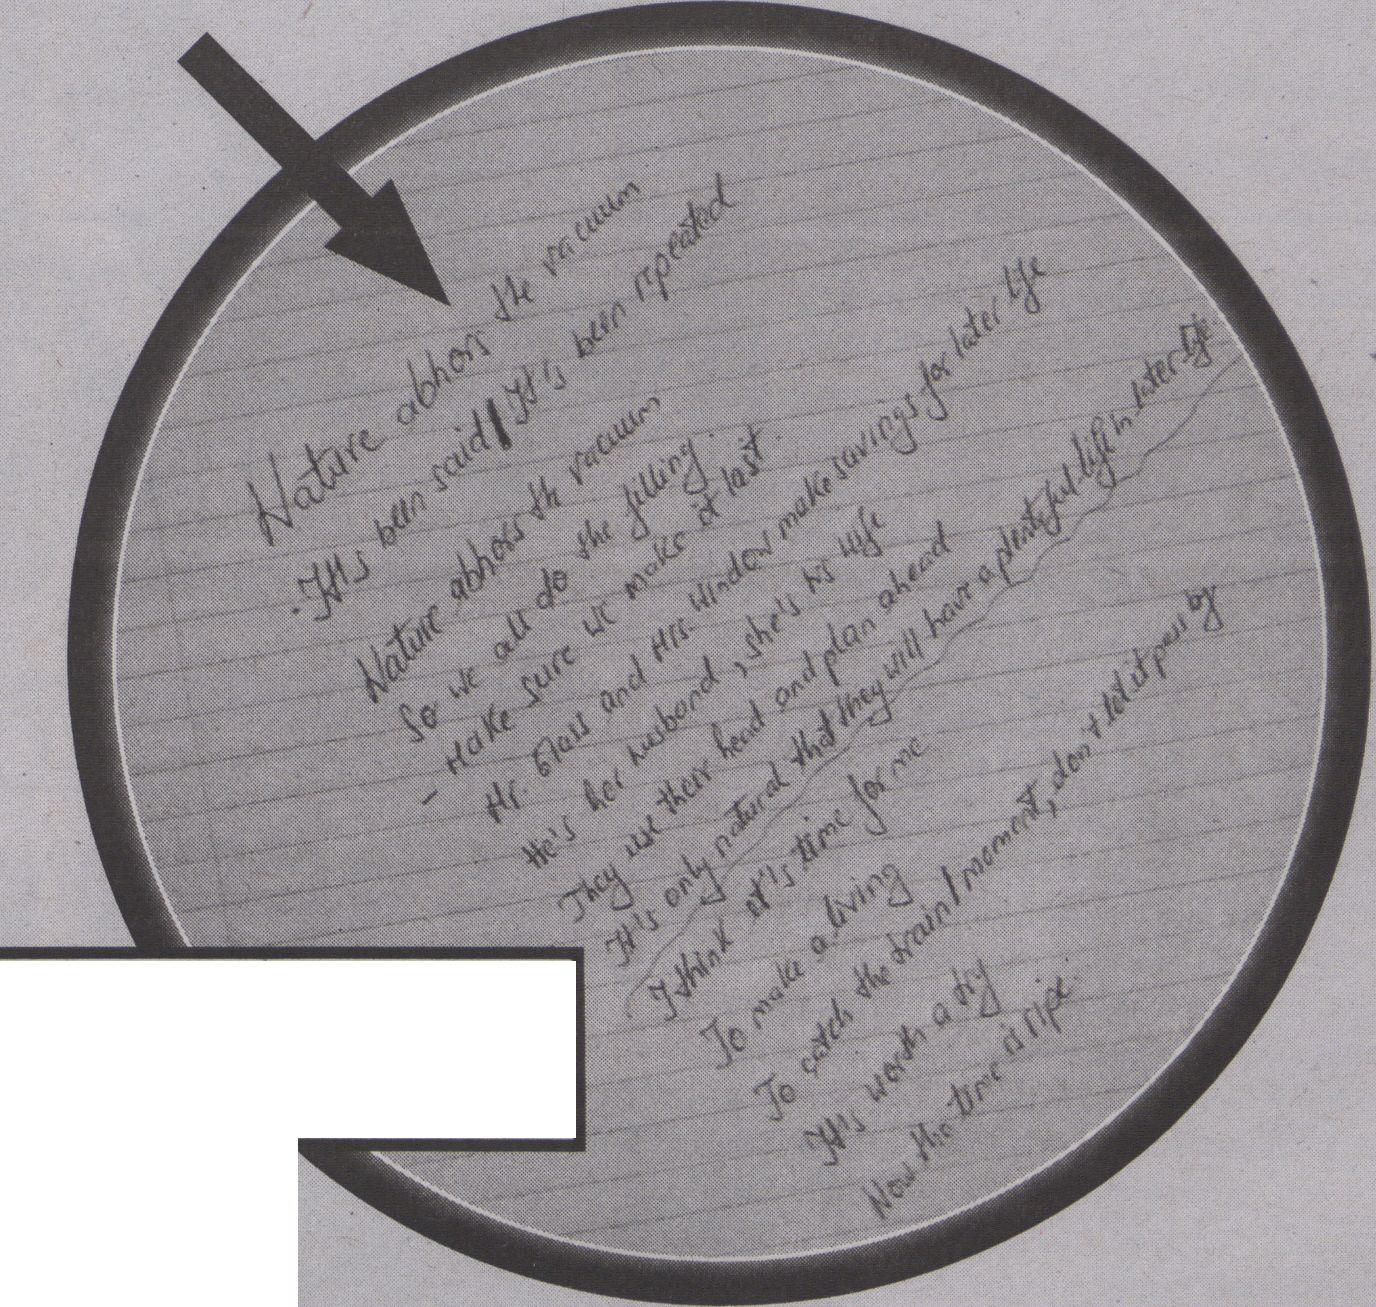 Nature abhors the vacuum
- It's been said / It's been repeated
Nature abhors the vacuum
So we all do the filling.
- Make sure we make it last.
Mr. Glass and Mrs. Window make savings for later life
He's her husband, she's his wife
They use their head and plan ahead
It's only natural that they will have a plentiful life in later life.
I think it's time for me
To make a living
To catch the train / moment, don't let it pass by
It's worth a try
Now the time is ripe.